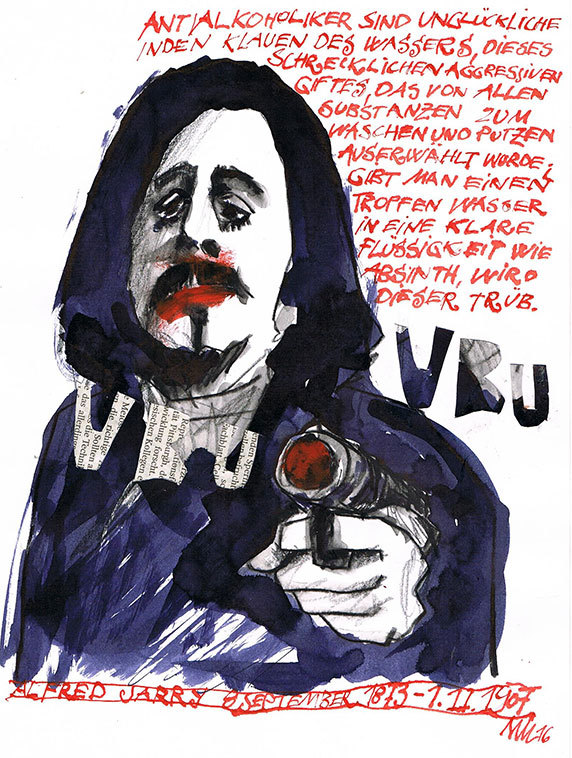 ANTIALKOHOLIKER SIND UNGLÜCKLICHE
IN DEN KLAUEN DES WASSERS, DIESES
SCHRECKLICHEN AGGRESSIVEN
GIFTES, DAS VON ALLEN
SUBSTANZEN ZUM
WASCHEN UND PUTZEN
AUSERWÄHLT WURDE;
GIBT MAN EINEN
TROPFEN WASSER
IN EINE KLARE
FLÜSSIGKEIT WIE
ABSINTH, WIRD
DIESER TRÜB.
UBU
ALFRED JARRY 8 SEPTEMBER 1873-1.11.1907